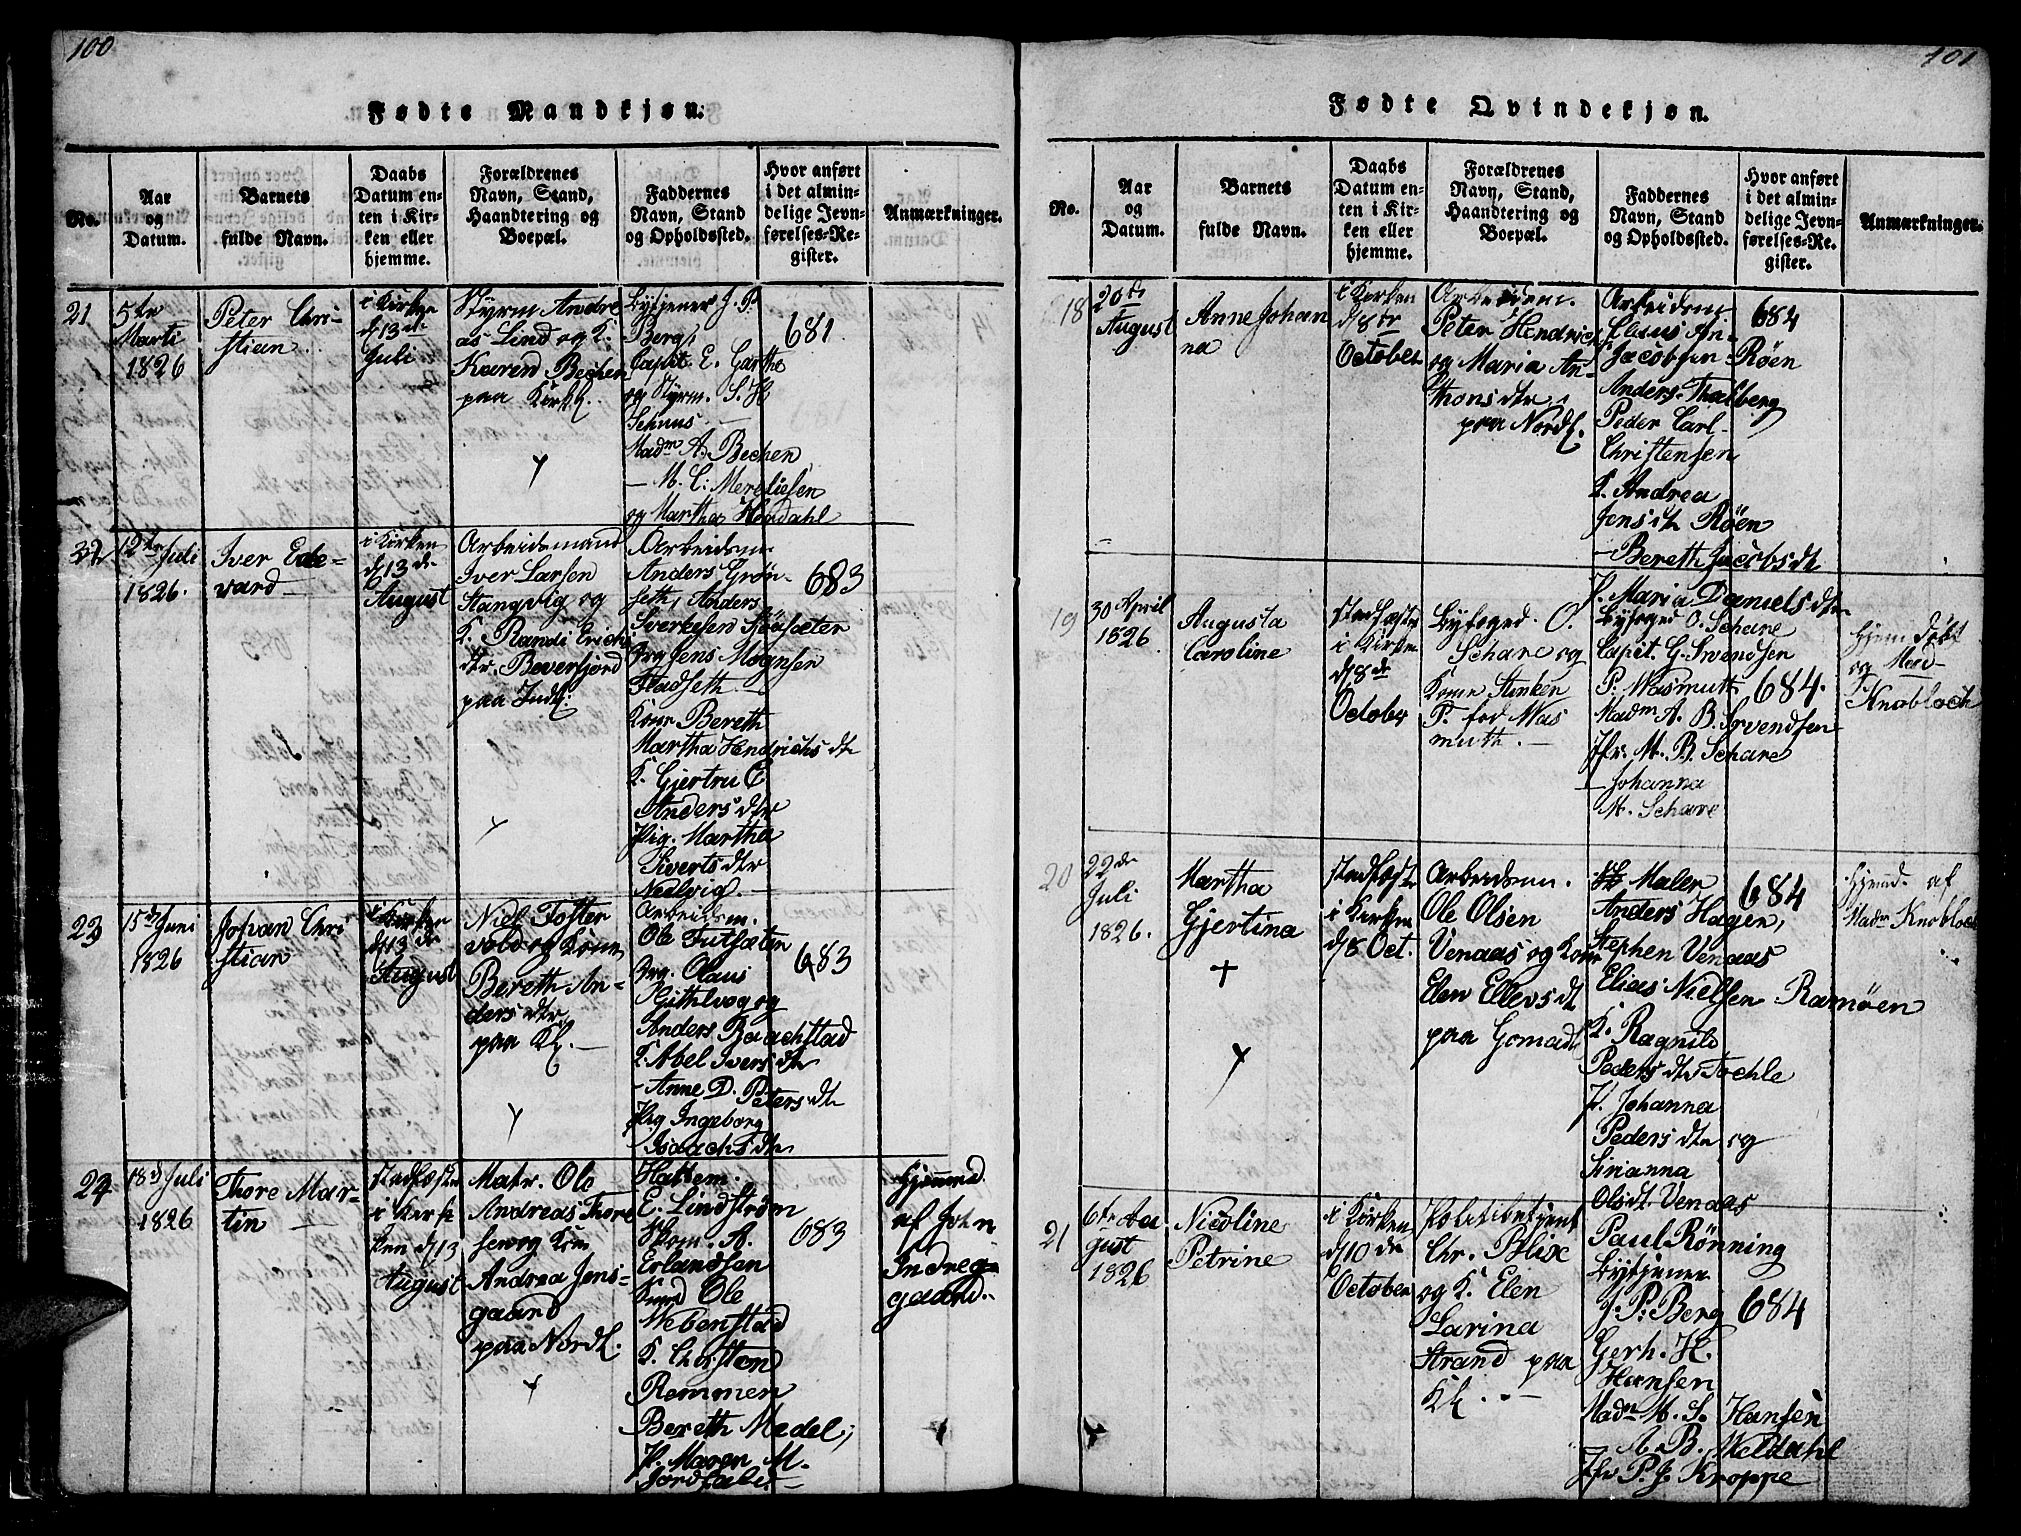 100
Fødte Mandkjøn.
No.
Aar
og
Datum.
Barnets
fulde Navn.
Daabs
Datum en-
ten i Kir-
ken eller
hjemme.
Forældrenes
Navn, Stand,
Haandtering og
Boepæl.
Faddernes
Navn, Stand
og Opholdssted.
Hvor anført
i det almin-
delige Jevn-
førelses-Re-
gister.
Anmærkninger.
21
5te
Marti
1826
Peter Chri-
stian
i Kirken
d 13de
Juli
Styrm Andre
as Lind og K.
Karen Bechen
paa Kirkl.
Bytjener J. P.
Berg,
Capit. E. Garthe
og Styrm. S. H
Schnus
Madm A. Bechen
– M. C. Mereliesen
og Martha Hoxdahl
681
22
12te Juli
1826.
Iver Ede-
vard
i Kirken
d 13de
August
Arbeidsmand
Iver Larsen
Stangvig og
K. Randi Erichs
dtr. Beverfjord
paa Indl.
Arbeidsm
Anders Grøn-
seth, Anders
Sverkesen Røsæter
Drg Jens Mognsen
Fladseth.
Kone Bereth
Martha Hendrichs dtr
K. Gjertru E
Anders dtr
Pig. Martha
Siverts dtr
Nedlvig.
683
23
15de Juni
1826
Johan Chri
stian
i Kirken
d 13de
August
Niels Foster
vold og Kone
Bereth An-
ders dtr
paa Kl.
Arbeidsm.
Ole Futsæter
Drg. Olaus
Githlvog og
Anders Baachstad
K. Abel Ivers dtr
– Anne D. Peters dtr
Pig Ingeborg
Isaachs dtr
683
24
18de Juli
1826
Thore Mar-
tin
stadfæstet
i Kirk
ken d 13
August
Matr. Ole
Andreas Thore
sen og Kone
Andrea Jens-
gaard
paa Nordl.
Hattem.
E. Lindstrøm
Skom. A.
Erlandsen
Knud Ole
Mebenstad
K. Christen
Remmen
Bereth Medel,
P. Maren M.
Jordfald
683
Hjemmed
af John
Indreg
gaard.
101
Fødte Qvindekjøn.
No.
Aar
og
Datum.
Barnets
fulde Navn.
Daabs
Datum en-
ten i Kir-
ken eller
hjemme.
Forældrenes
Navn, Stand,
Haandtering og
Boepæl.
Faddernes
Navn, Stand
og Opholdssted.
Hvor anført
i det almin-
delige Jevn-
førelses-Re-
gister.
Anmærkninger.
18
20de
August
Anne Johan
na
i Kirken
d 8de
October
Arbeidsm.
Peter Hendrics
og Maria An-
thons dtr
paa Nordl.
Arbeidsm
Claus An-
Jacobsen Røen
Anders Thalberg
Peder Carl-
Christensen
K. Andrea
Jens dtr Røen
– Bereth Jacobs dt
P. Maria Daniels dtr
684
19
30 April
1826
Augusta
Caroline
stadfæstet
i Kirken
d 8de
October
Byfoged O.
Schare og
Kone Stinken
P. fød Was
muth.
Byfoged O. Schare
Capit. G. Svendsen
P. Wasmuth
Madm A. B. Svendsen
Jfr. M. B. Schare
– Johanna
M. Schare
684.
Hjemdøbt
og Mad-
Knobloch
20
22de
Juli
1826.
Martha
Gjertina
stadfæstet
i Kirken
d 8 Oct.
Arbeidsm.
Ole Olsen
Venaas og Kone
Elen Ellevs dt
paa Gomadl
Maler
Anders Hagen,
Stephen Venaas
Elias Nielsen Ramøen
K. Ragnild
Peders dtr Tochle
P. Johanna
Peders dtr og
Sirianna
Ols dt Venaas
684
Hjemd. af
Madm Knobloch
21
6te Au
gust
1826
Nicoline
Petrine
i Kirken
d 10de
October
Politibetjent
Chr. Blix
og K. Elen
Larina
Strand paa
Kl.
Paul Rønning
Bytjener
J. P. Berg
Gerh. H.
Hansen
Madm M. S. Hansen
A. B. Weldahl
Jfr P. J. Kroppe
684